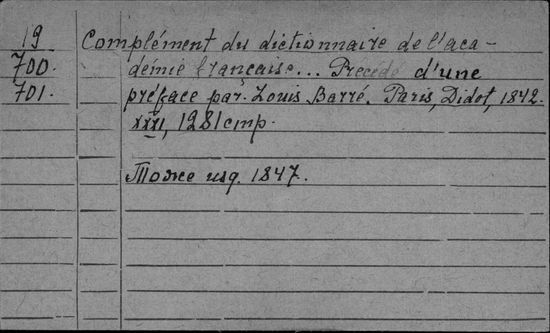 19 Complément du dictionnaire de l'aca-
700. démie française... Precédé d'une
701. préface par. Louis Barré. Paris, Didot, 1842.
XXXI, 1281 стр.
Тоже изд. 1847.